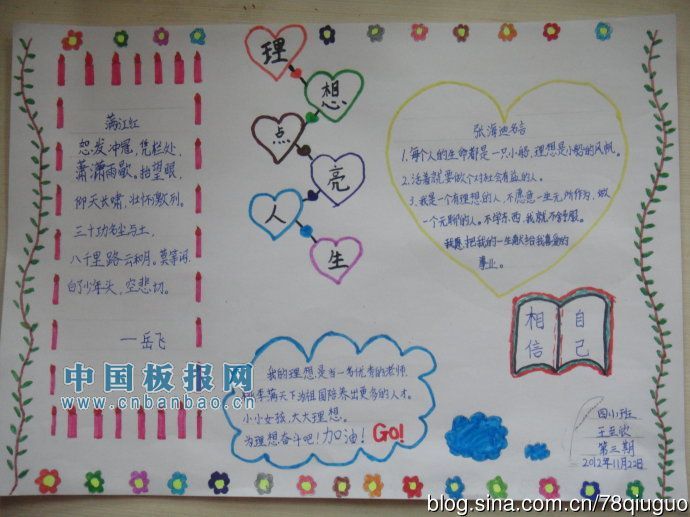 满江红
怒发冲冠,凭栏处,
潇潇雨歇。抬望眼,
仰天长啸,壮怀激烈。
三十功名尘与土,
八千里路云和月。莫等闲
白了少年头,空悲切。
—岳飞
理
想
点
亮
人
生
张海迪名言
1.每个人的生命都是一只小船,理想是小船的风帆。
2.活着就要做个对社会有益的人。
3.我是一个有理想的人,不愿意一生无所作为,做
一个无聊的人。不学东西,我就不舒服。
我愿把我的一生献给我喜爱的
事业。
相信
自己
我的理想是当一名优秀的老师,
桃李满天下为祖国培养出更多的人才。
小小女孩,大大理想。
为理想奋斗吧!加油!Go!
四(1)班
第三期
2012年11月22日
中国板报网
www.cnbanbao.cn
blog.sina.com.cn/78qiuguo